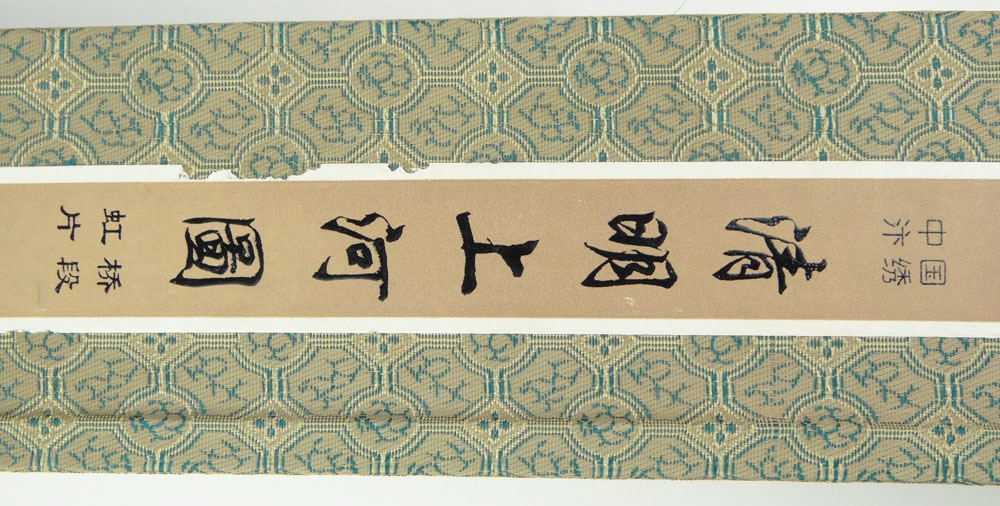 中国
汴绣
清明上河圖
虹桥
片段